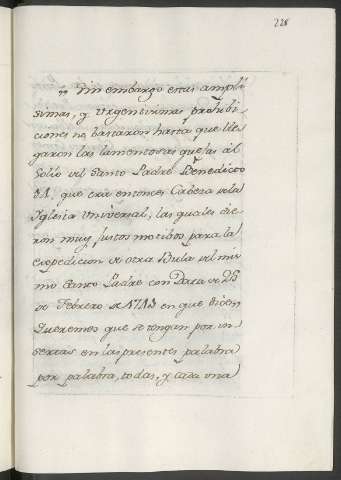 228
" Sin embargo estas ampli
simas, y urgentisimas prohibi
ciones no bastaron hasta que lle
garon las lamentosas quejas al
Solio del Santo Padre Benedicto
que era entonces Cabeza de la
Iglesia Universal, las quales die
ron muy justos motibos para la
expedicion de otra Bula del mis
mo Santo Padre con Data de 25
de Febrero de en que dicen
Queremos que se tengan por in
sertas en las presentes palabra
por palabra, todas, y cada una